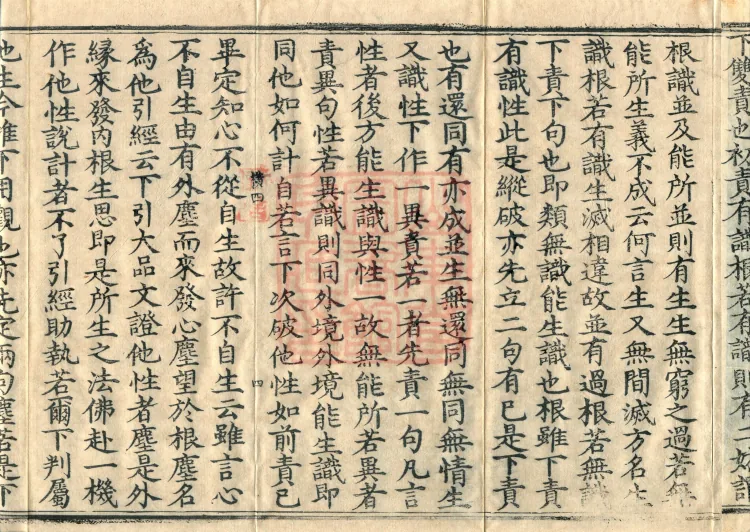 下雙責也初責有識根若有識則有一如謂
根識並及能所並則有生生無窮之過若無
能所生義不成云何言生又無間滅方名生
識根若有識生滅相違故並有過根若無識
下責下句也即類無識能生識也根雖下責
有識性此是縱破亦先立二句有已是下責
也有還同有亦成並生無還同無同無情生
又識性下作一異責若一者先責一句凡言
性者後方能生識與性一故無能所若異者
責異句性若異識則同外境外境能生識即
同他如何計自若言下次破他性如前責已
橫四 四
畢定知心不從自生故許不自生云雖言心
不自生由有外塵而來發心塵望於根塵名
為他引經云下引大品文證他性者塵是外
緣來發內根生思即是所生之法佛赴一機
作他性說計者不了引經助執若爾下判屬
他生今雖下用觀也亦先定兩句塵若是下